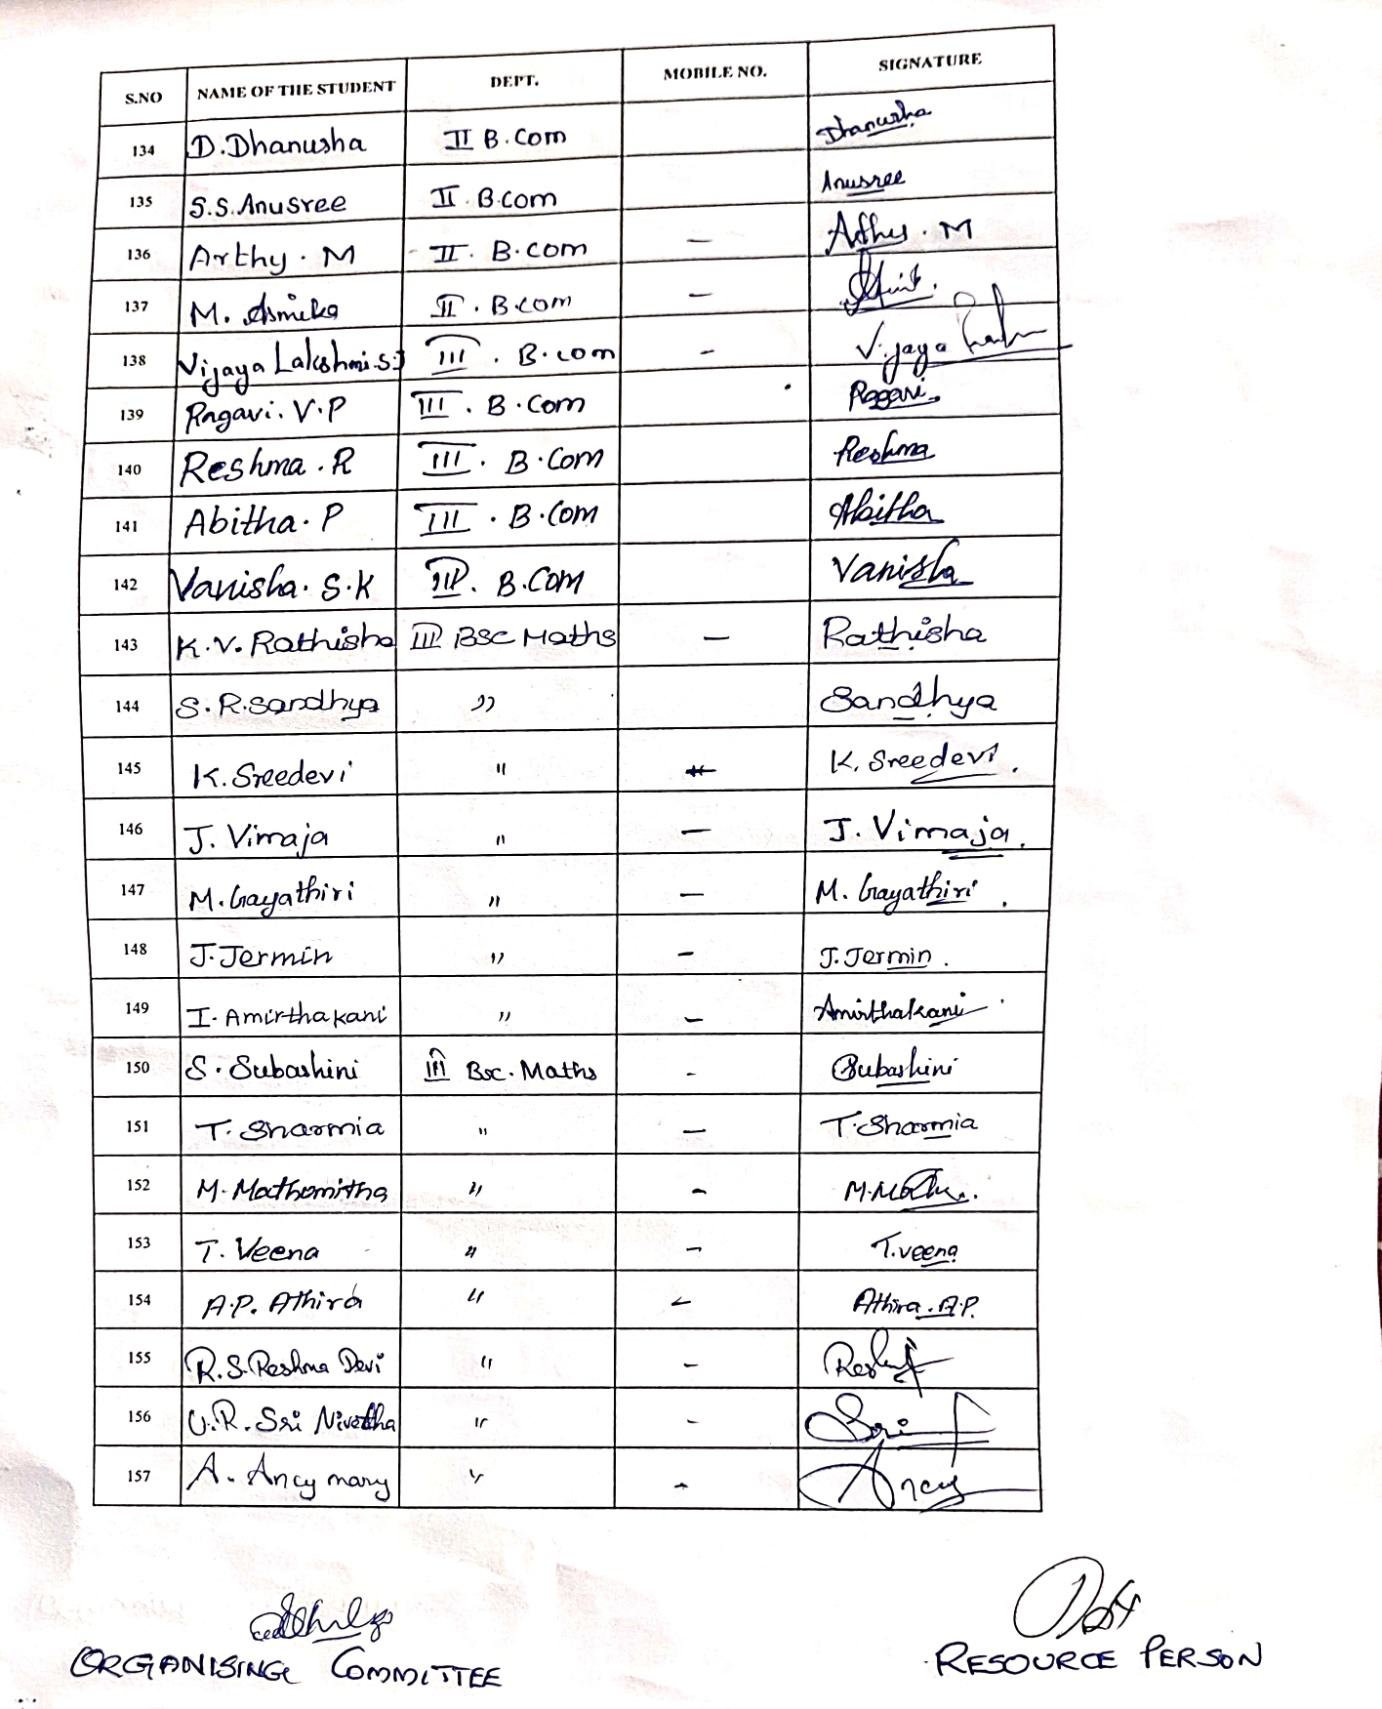 S.NO NAME OF THE STUDENT DEPT. MOBILE NO. SIGNATURE
134 D.Dhanusha II B.Com Dhanusha
135 S.S.Anusree II. B.com Anusree
136 Arthy. M II. B.com - Arthy. M
137 M. Asmika II. B.com -
138 Vijaya Lakshmi.S.J III. B.com - Vijaya
139 Ragavi. V.P III. B.Com Ragavi.
140 Reshma.R III. B.Com Reshma
141 Abitha. P III. B.Com Abitha
142 Vanisha. S.K III. B.Com Vanisha
143 K.V. Rathisha III BSC Maths - Rathisha
144 S.R.Sandhya " Sandhya
145 K.Sreedevi " K. Sreedevi.
146 J. Vimaja " - J. Vimaja.
147 M.Gayathiri " - M. Gayathiri.
148 J.Jermin " - J.Jermin.
149 I. Amirthakani " - Amirthakani.
150 S. Subashini III Bsc. Maths - Subashini
151 T. Sharmia " - T.Sharmia
152 M. Mathumitha " -
153 T. Veena " - T.veena
154 A.P. Athira " - Athira.A.P.
155 R.S.Reshma Devi " -
156 U.R. Sri Nivetha " - Sri
157 A. Ancy mary " - Ancy
ORGANISING COMMITTEE RESOURCE PERSON